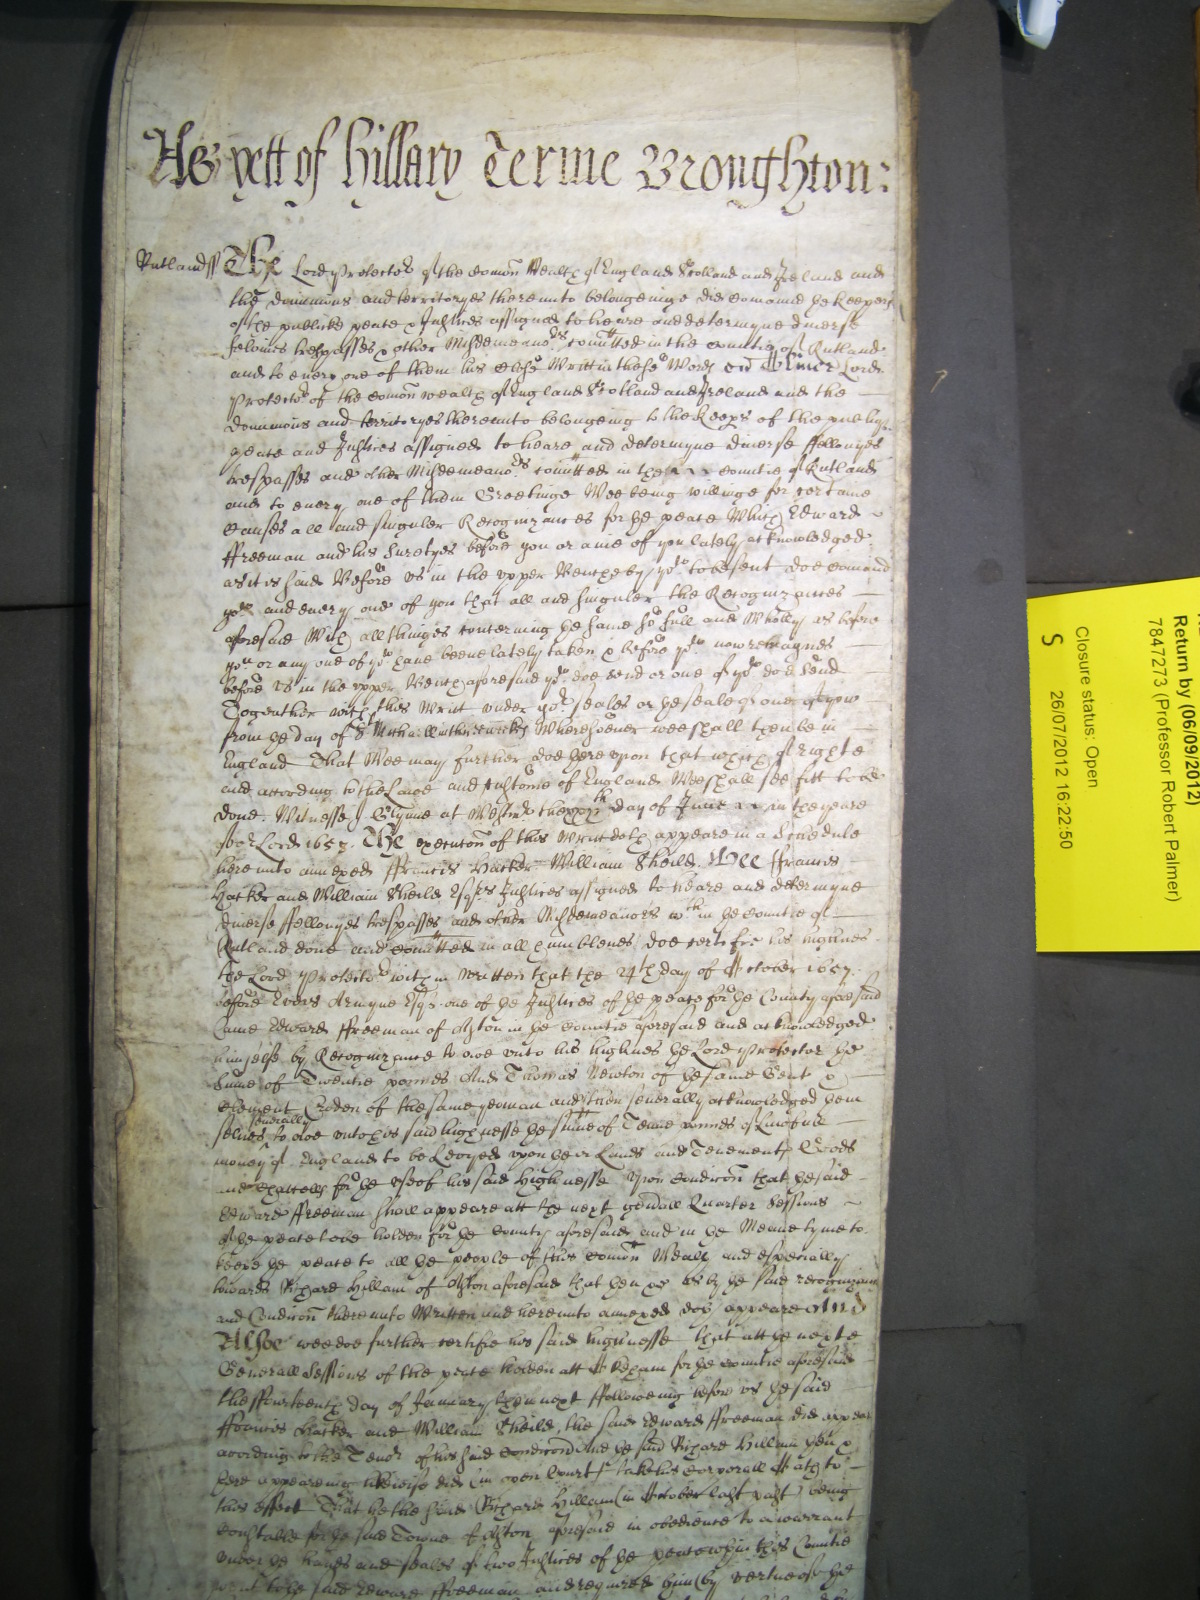 As yett of Hillary Terme Broughton:
Rutland ss The Lord Protector of the Comon Wealth of England Scotland and Ireland and
the dominions and territoryes thereunto belongeinge did comand the Keepers
of the publicke peace & Justices assigned to heare and determyne diverse
felonies trespasses & other Misdemeanors comitted in the countie of Rutland
and to every one of them his Writt in these Words Oliver Lord
Protector of the Comon wealth of England Scotland and Ireland and the
dominions and territoryes thereunto belongeing to the Keeps of the publique
peace and Justices assigned to heare and determyne diverse ffellonyes
trespasses and other Misdemeanors comitted in the countie of Rutland
and to every one of them Greetinge Wee being willinge for certaine
causes all and singuler Recognizances for the peace Which Edward
ffreeman and his Suretyes before you or anie of you lately acknowledged
as it is said Before us in the upper Bench by you to be sent doe comand
you and every one of you that all and singuler the Recognizances
aforesaid With all thinges concerning the same so full and Wholly as before
you or any one of you have beene lately taken & before you now remaynes
before us in the upper Bench aforesaid you doe send or one of you doe send
Togeather with this Writt under your seales or the seale of one of you
from the day of Wheresoever wee shall then be in
England That Wee may further doe hereupon that which of right
and according to the Lawe and Custome of England Wee shall see fitt to be
done. Witnesse J Glynne at Westmr the day of June in the yeare
of our Lord 1658. The execucon of this Writt doth appeare in a Schedule
hereunto annexed ffrancis Hacker William Sheild. Wee ffrancis
Hacker and William Sheild Esqrs Justices assigned to heare and determyne
diverse ffellonyes trespasses and other Misdemeanors wthin the countie of
Rutland done and comitted in all humblenes doe certifie his highnes
the Lord Protector within written that the 24th day of October 1657.
before Evers Armyne Esqr one of the Justices of the peace for the County aforesaid
Came Edward ffreeman of Ashton in the countie aforesaid and acknowledged
himselfe by Recognizance to owe unto his highnes the Lord Protector the
sume of Twentie pounds And Thomas Newton of the same Gent &
Clement of the same yeoman and then severally acknowledged them
severally
selves to owe unto his said highnesse the sume of Tenne pounds of lawfull
money of England to be Levyed upon their Lands and Tenements Goods
and Chattells for the use of his said Highnesse Upon Condicon that the said
Edward ffreeman shall appeare att the next generall Quarter Sessions
of the peace to be holden for the County aforesaid and in the Meane tyme to
keepe the peace to all the people of this Comon Wealth and especially
towards Richard Hillam of Ashton aforesaid that then &c As by the said recognizance
and Condicon thereunto Written and hereunto annexed doth appeare And
Alsoe wee doe further certifie his said highnesse that att the next
Generall Sessions of the peace holden att Okeham for the countie aforesaid
the ffourteenth day of January then next ffolloweing before us the said
ffrancis Hacker and William Sheild, the said Edward ffreeman did appear
according to the Tenor of his said condicon And the said Richard Hillam then &
there appearing likewise did (in open Court) take his corporall Oath to
this effect That he the said Richard Hillam (in October last past) being
Constable for the said Towne of Ashton aforesaid in obedience to a warrant
under the hands and seales of two Justices of the peace wthin this Countie
went to the said Edward ffreeman and required him (by vertue of the
Return by (06/09/2012)
7847273 (Professor Robert Palmer)
Closure status: Open
S 26/07/2012 16:22:50